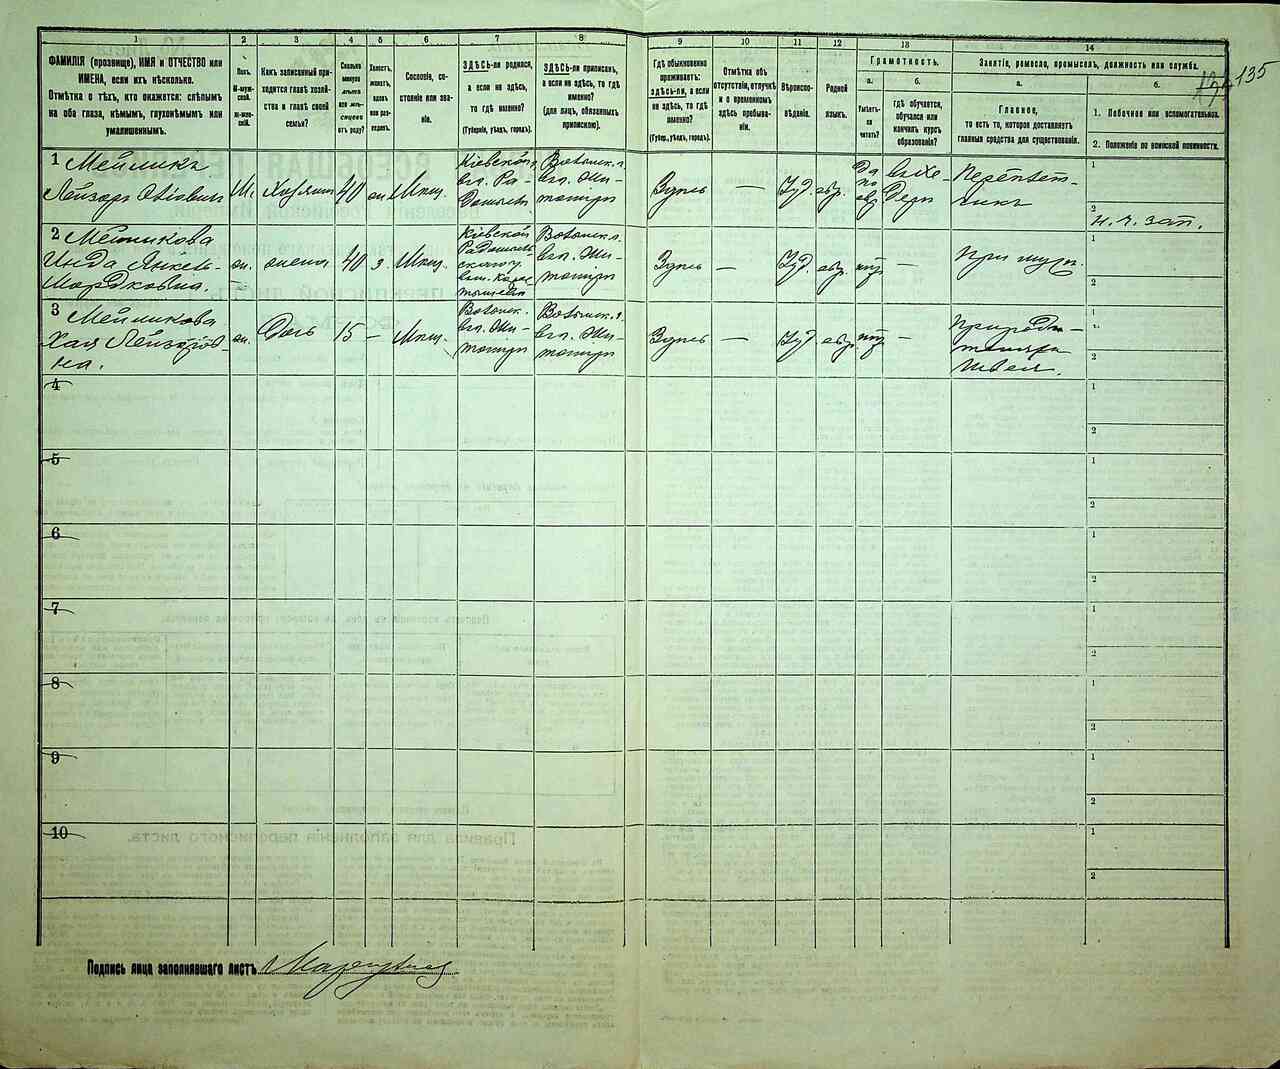 1
2
3
4
5
6
7
8
9
10
11
12
13
14
135
ФАМИЛІЯ (прозвище), ИМЯ и ОТЧЕСТВО или
ИМЕНА, если ихъ нѣсколько.
Отмѣтка о тѣхъ, кто окажется: слѣпымъ
на оба глаза, нѣмымъ, глухонѣмымъ или
умалишеннымъ.
Полъ.
М-муж-
ской.
Ж-жен-
скій.
Какъ записанный при-
ходится главѣ хозяй-
ства и главѣ своей
семьи?
Сколько
минуло
лѣтъ
или мѣ-
сяцевъ
отъ роду?
Холостъ,
женатъ,
вдовъ
или раз-
веденъ.
Сословіе, со-
стояніе или зва-
ніе.
ЗДѢСЬ-ли родился,
а если не здѣсь,
то гдѣ именно?
(Губернія, уѣздъ, городъ).
ЗДѢСЬ-ли приписанъ,
а если не здѣсь, то гдѣ
именно?
(для лицъ, обязанныхъ
припискою).
Гдѣ обыкновенно
проживаетъ:
здѣсь-ли, а если
не здѣсь, то гдѣ
именно?
(Губерн., уѣздъ, городъ).
Отмѣтка объ
отсутствіи, отлучкѣ
и о временномъ
здѣсь пребыва-
ніи.
Вѣроиспо-
вѣданіе.
Родной
языкъ.
Грамотность.
а.
Умѣетъ-
ли
читать?
б.
гдѣ обучается,
обучался или
кончилъ курсъ
образованія?
Занятіе, ремесло, промыселъ, должность или служба.
а.
Главное,
то есть то, которое доставляетъ
главныя средства для существованія.
б.
1. Побочное или вспомогательное.
2. Положеніе по воинской повинности.
1 Мейникъ
Лейзоръ
М.
Хозяин
40
Мѣщ.
Кіевской
Волынск. г.
Жи-
томиръ
Здѣсь
—
Іуд.
евр.
Да
по
евр.
хе-
дерѣ
1
2
2 Мейникова
жена
40
з.
Мѣщ.
Кіевской
Волынск. г.
Жи-
томиръ
Здѣсь
—
Іуд.
евр.
—
При муж.
1
2
3 Мейникова
Хая Лейзоров-
на.
Дочь
15
—
Мѣщ.
Волынск.
Жи-
томиръ
Волынск. г.
Жи-
томиръ
Здѣсь
—
Іуд.
евр.
—
При роди-
теляхъ
Швея.
1
2
4
1
2
5
1
2
6
1
2
7
1
2
8
1
2
9
1
2
10
1
2
Подпись лица заполнявшаго листъ